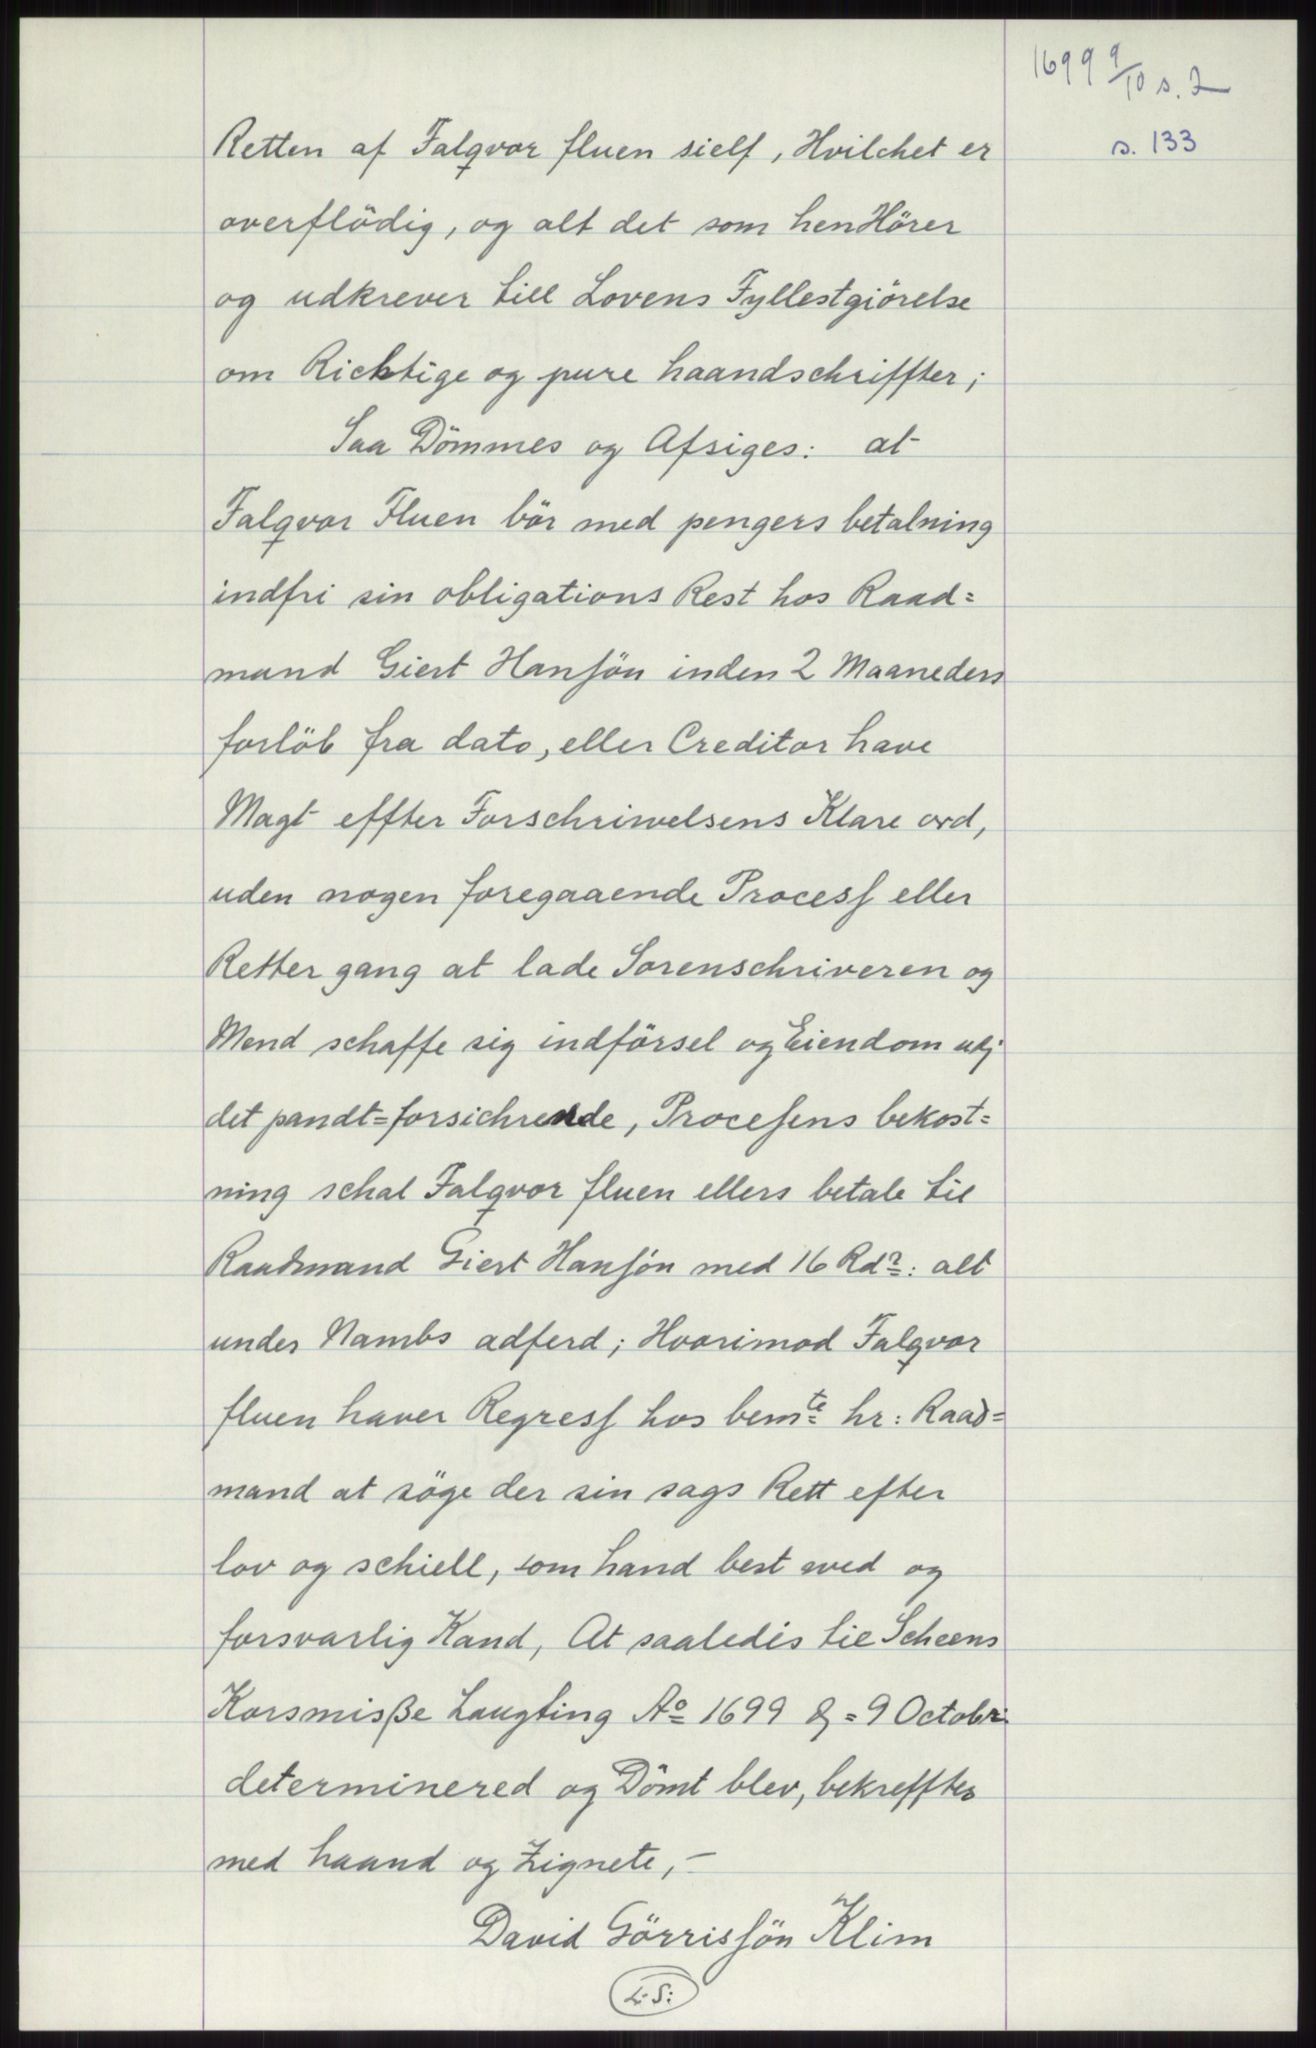 1699 9/10 s. 2
s. 133
Retten af Falqvor fluen sielf, Hvilchet er
overflödig, og alt det som henHörer
og udkrever till Lovens Fyllestgiörelse
om Ricktige og pure haandschriffter;
Saa Dömmes og Afsiges: at
Falqvor Fluen bör med pengers betalning
indfri sin obligations Rest hos Raad=
mand Giert Hansön inden 2 Maaneders
forlöb fra dato, eller Creditor have
Magt effter Forschriwelsens Klare ord,
uden nogen foregaaende Process eller
Retter gang at lade Sorenschriveren og
Mend schaffe sig indförsel og Eiendom udj
det pandt=forsichrende, Procesens bekost=
ning schal Falqvor fluen ellers betale til
Raadmand Giert Hansön med 16 Rdr: alt
under Nambs adferd; Hvorimod Falqvor
fluen haver Regress hos bemte hr: Raad=
mand at söge der sin sags Rett efter
lov og schiell, som hand best wed og
forsvarlig Kand, At saaledis til Scheens
Korsmiße Laugting Ao 1699 d=9 Octobr:
determinered og Dömt blev, bekreffter
med haand og Zignete,-
David Görrissön Klim
L.S: